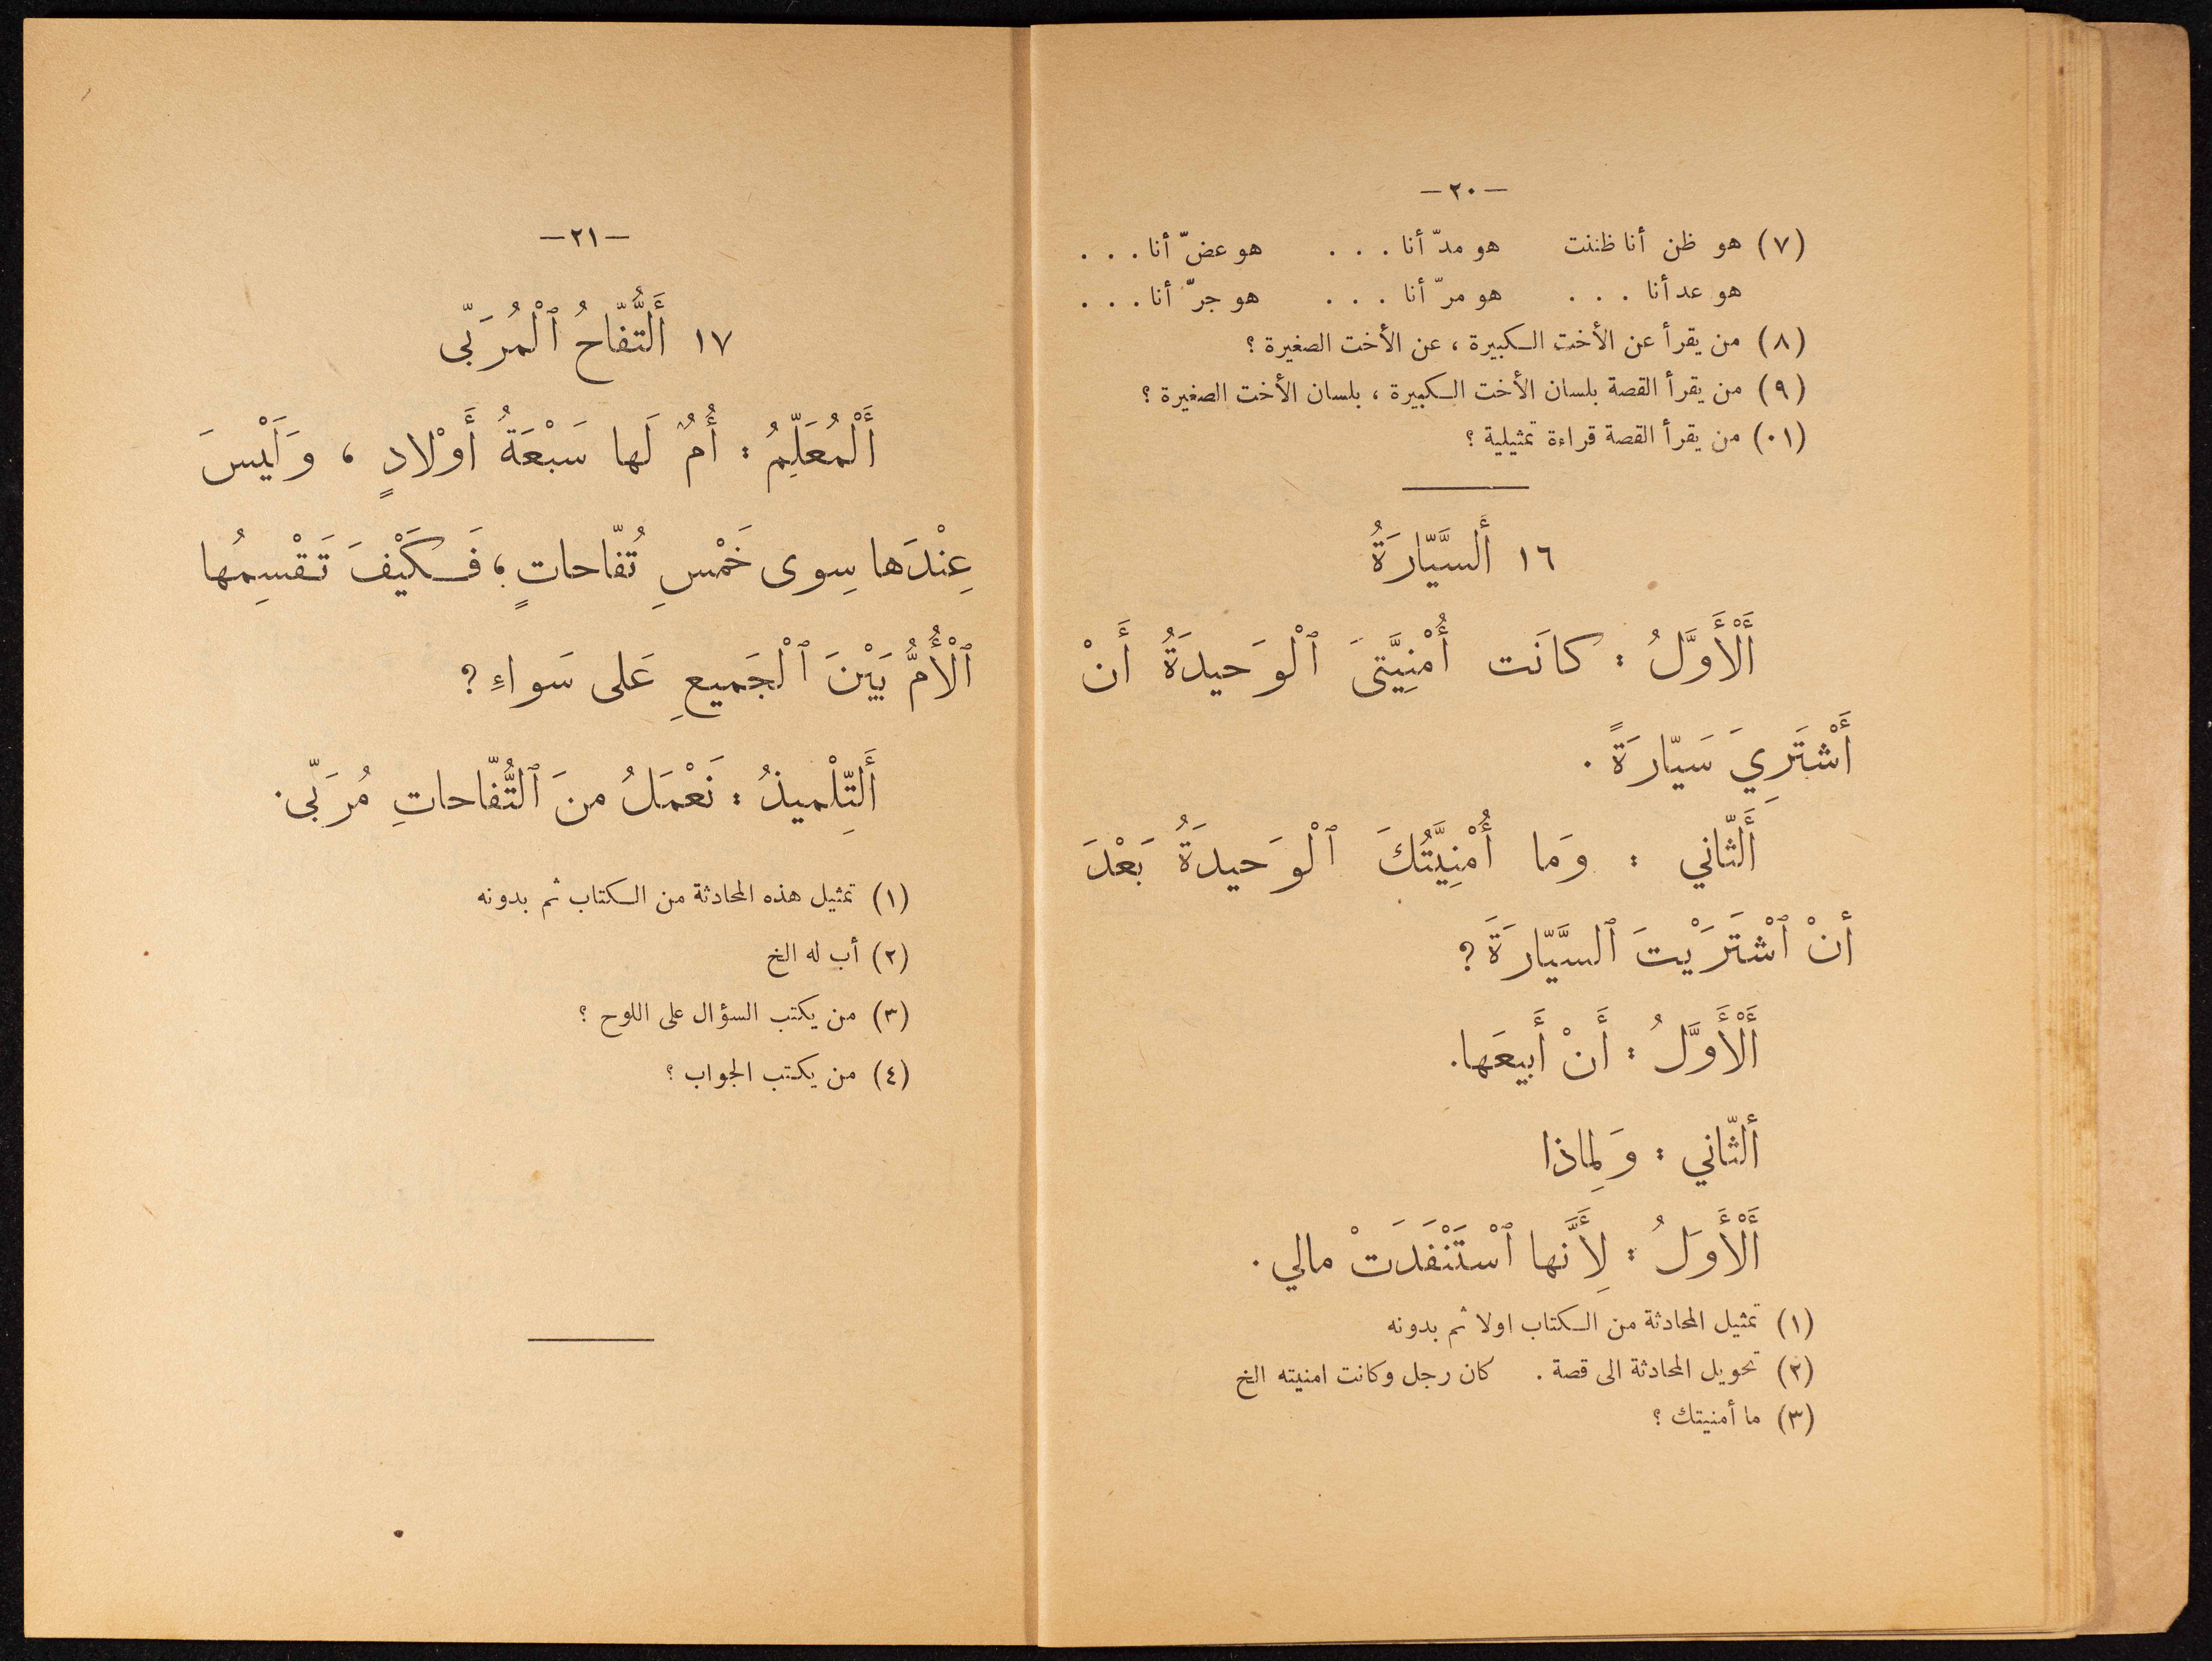 — ٢٠ —
(٧) هو ظن أنا ظننت هو مدّ أنا . . . هو عضّ أنا . . .
هو عد أنا . . . هو مرّ أنا . . . هو جرّ أنا . . .
(٨) من يقرأ عن الأخت الكبيرة ، عن الأخت الصغيرة ؟
(٩) من يقرأ القصة بلسان الأخت الكبيرة ، بلسان الأخت الصغيرة ؟
(٠١) من يقرأ القصة قراءة تمثيلية ؟
١٦ أَلسَّيّارَةُ
أَلْأَوَّلُ : كانَت أُمْنِيَّتىَ ٱلْوَحيدَةُ أَنْ
أَشْتَرِيَ سَيّارَةً .
أَلثّاني : وَما أُمْنِيَّتُكَ ٱلْوَحيدَةُ بَعْدَ
أنْ ٱشْتَرَيْتَ ٱلسَّيّارَةَ ؟
أَلْأَوَّلُ : أَنْ أَبيعَها.
ألثّاني : وَلِماذا
أَلْأَوَلُ : لِأَنَّها ٱسْتَنْفَدَتْ مالي .
(١) تمثيل المحادثة من الكتاب اولا ثم بدونه
(٢) تحويل المحادثة الى قصة . كان رجل وكانت امنيته الخ
(٣) ما أمنيتك ؟
— ٢١ —
١٧ أَلتُّفّاحُ ٱلْمُرَبّى
أَلْمُعَلِّمُ : أُمٌ لَها سَبْعَةُ أَوْلادٍ ، وَلَيْسَ
عِنْدَها سِوى خَمْسِ تُفّاحاتٍ ؛ فَكَيْفَ تَقْسِمُها
ٱلْأُمُّ بَيْنَ ٱلْجَميعِ عَلى سَواءٍ ؟
أَلتِّلْميذُ : نَعْمَلُ منَ ٱلتُّفّاحاتِ مُرَبّى .
(١) تمثيل هذه المحادثة من الكتاب ثم بدونه
(٢) أب له الخ
(٣) من يكتب السؤال على اللوح ؟
(٤) من يكتب الجواب ؟